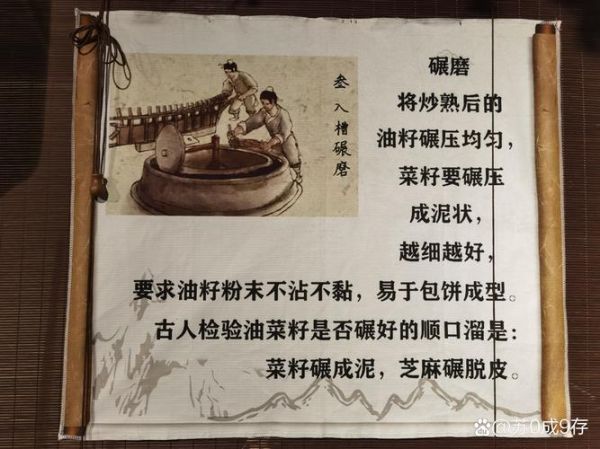 叁入槽碾磨
碾磨
将炒熟后的
油籽碾压均匀，
菜籽要碾压
成泥状，
越细越好，
要求油籽粉末不沾不黏，易于包饼成型。
古人检验油菜籽是否碾好的顺口溜是：
菜籽碾成泥，芝麻碾脱皮。